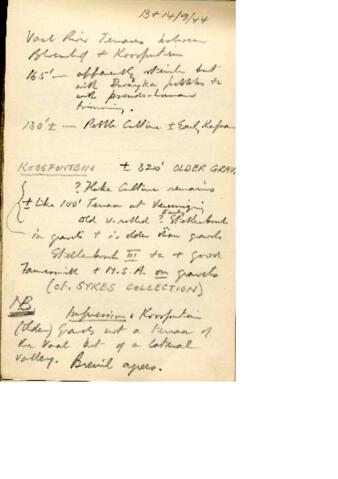 13 & 14/9/44
Vaal River Terraces between
Bloemhof & Koosfontein
165' — apparently sterile but
with Dwyka pebbles &c
with pseudo-human
trimming.
130' ± — Pebble Culture ± Early Kafuan
KOOSFONTEIN ± 320' OLDER GRAV.
? Flake Culture remains
± like 100' Terrace at Vereeniging
Old v. rolled ? Early Stellenbosch
in gravels & is older than gravels
Stellenbosch III &c & good
Fauresmith & M.S.A. on gravels
(cf. SYKES COLLECTION)
NB. Impression & Koosfontein
(Older) gravels not a terrace of
the Vaal but of a lateral
valley. Breuil agrees.